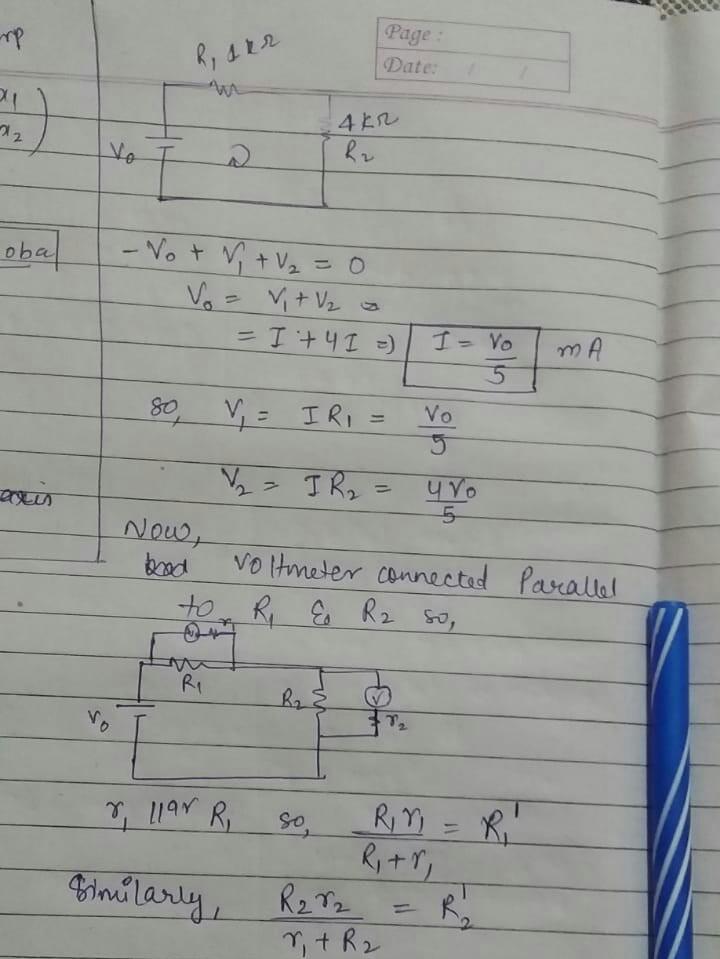 mp
Page :
Date: / /
R₁ 1kΩ
x₁
x₂ )
4kΩ
R₂
V₀
oba
- V₀ + V₁ + V₂ = 0
V₀ = V₁ + V₂
= I + 4I => I = V₀/5 mA
so, V₁ = I R₁ = V₀/5
V₂ = I R₂ = 4V₀/5
axis
Now,
Voltmeter connected Parallel
to R₁ & R₂ so,
V r
R₁
R₂ V
V₀ r₂
r₁ llar R₁ so, R₁r₁/R₁+r₁ = R₁'
Similarly, R₂r₂/r₁+R₂ = R₂'